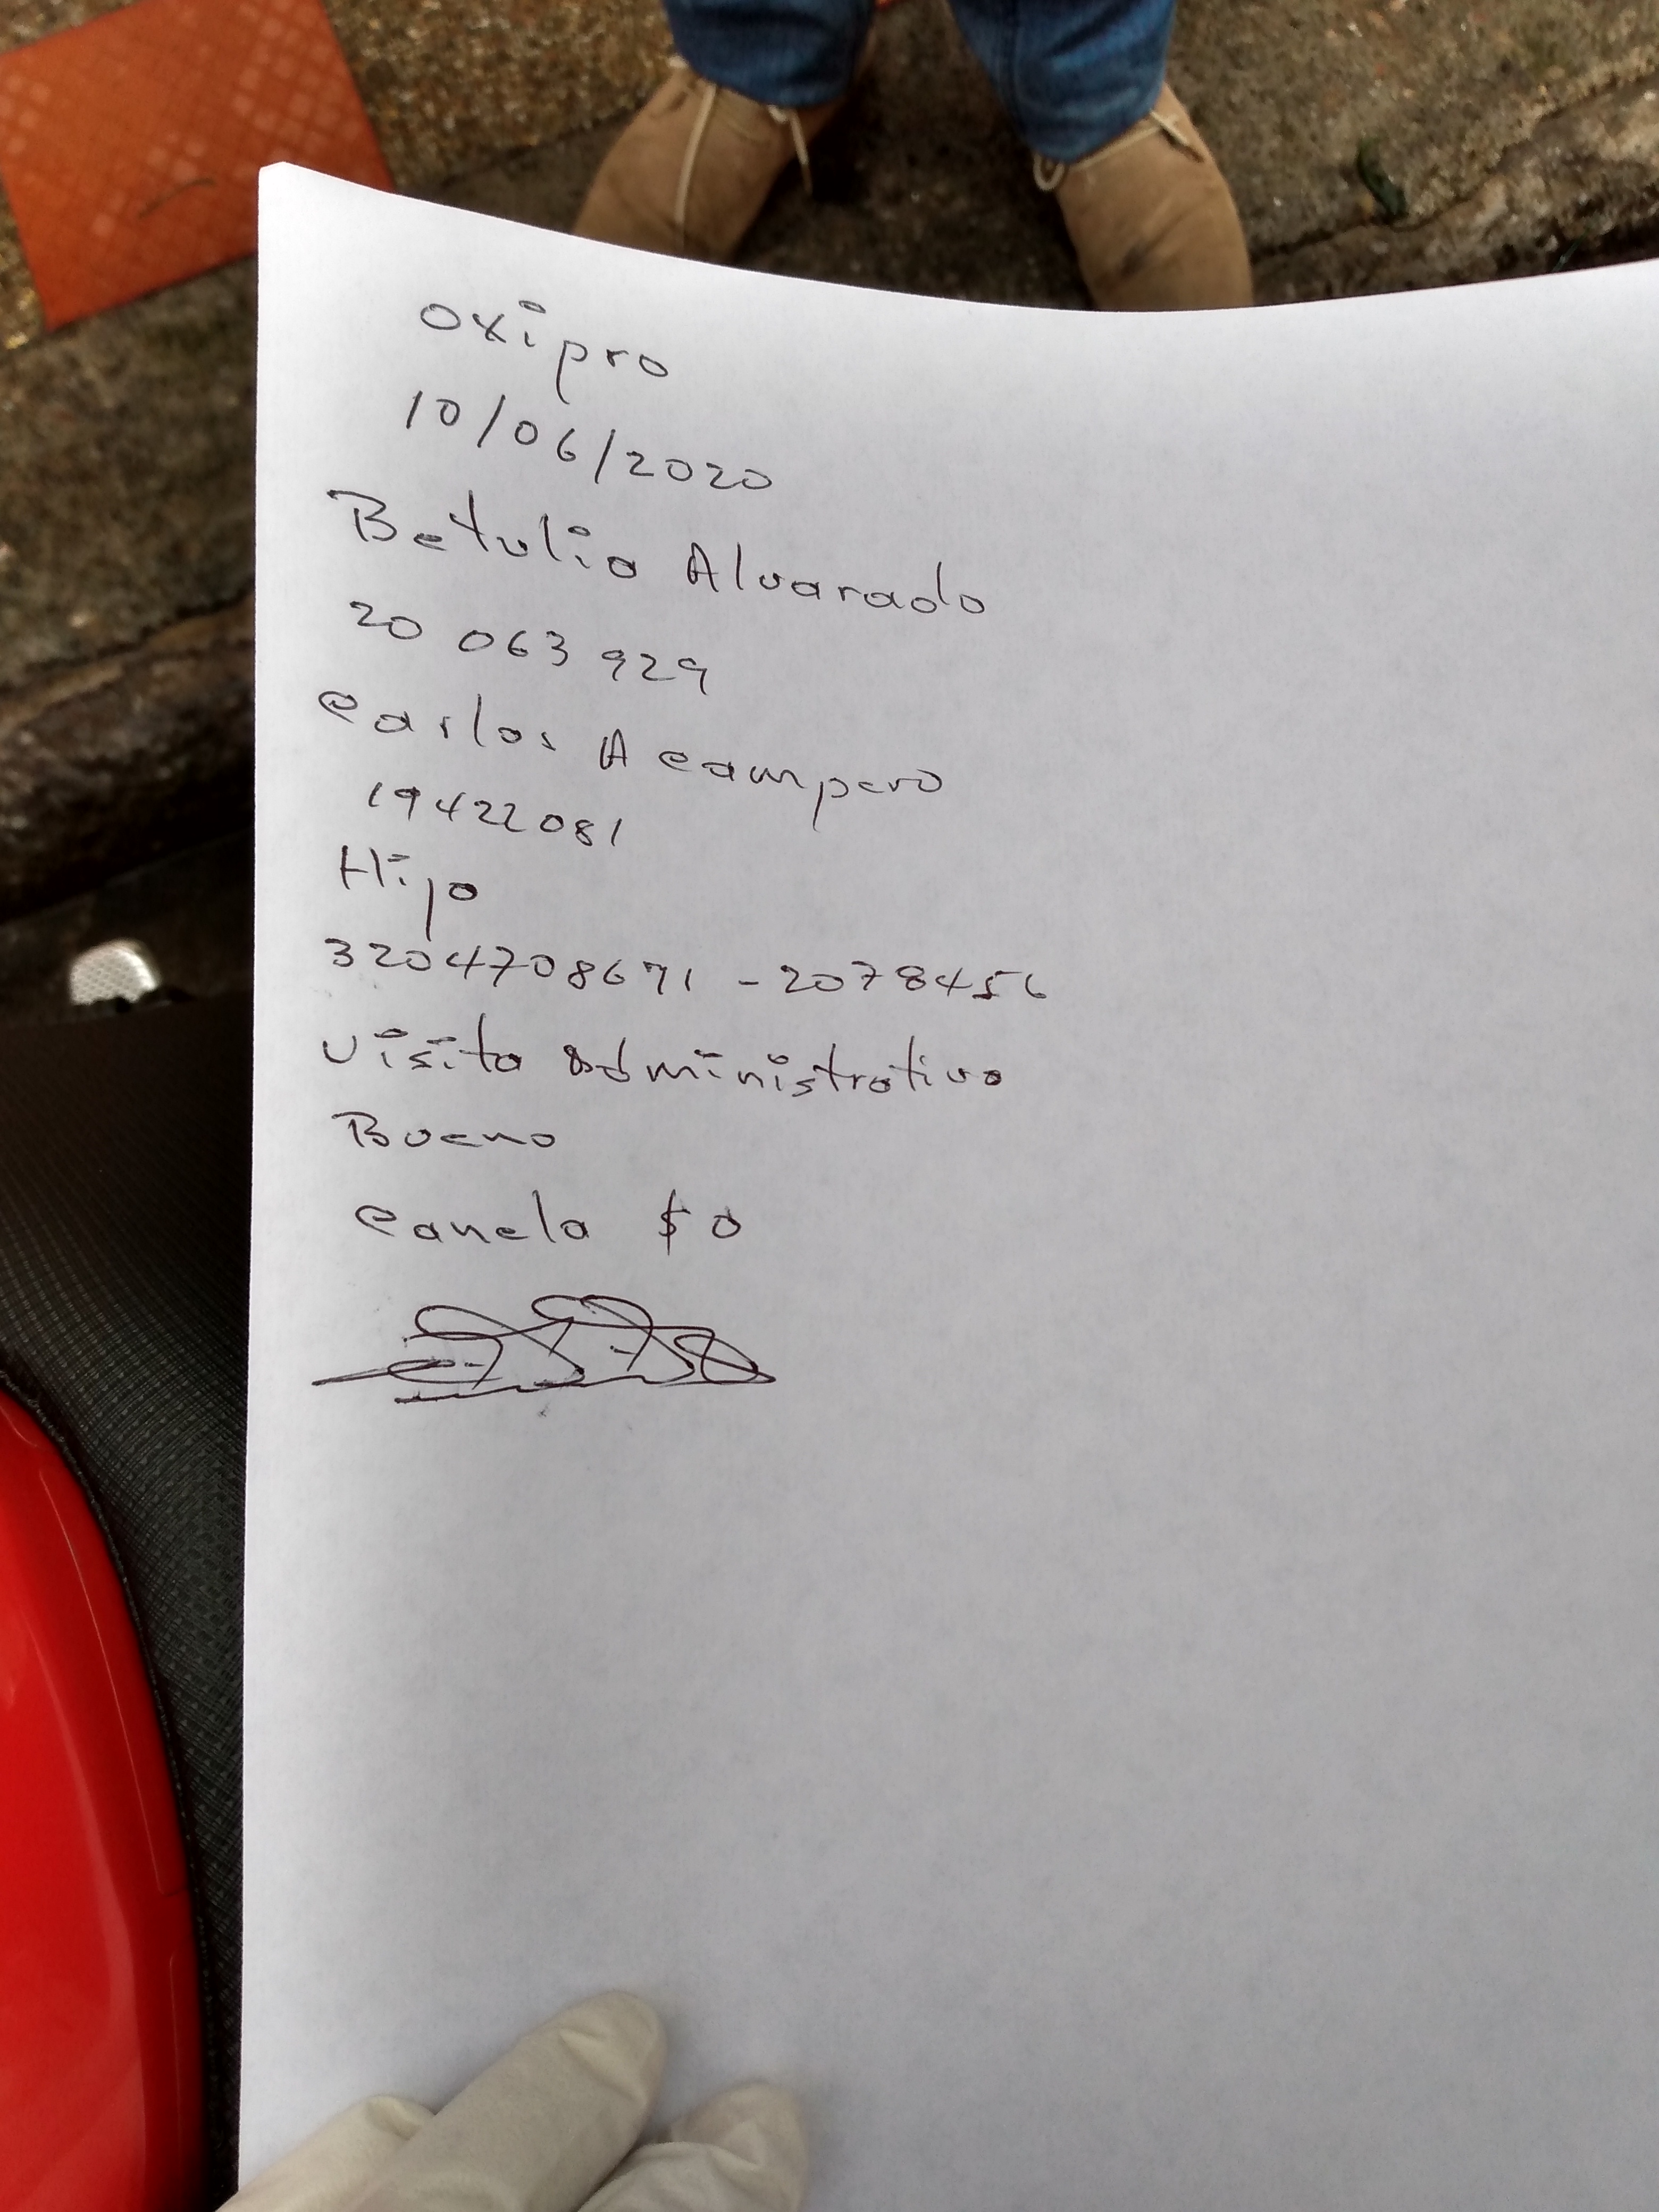 oxipro
10/06/2020
Betulia Alvarado
20 063 929
Carlos A campero
19422081
Hijo
3204708671 - 2078456
visita administrativa
Bueno
Canela $0